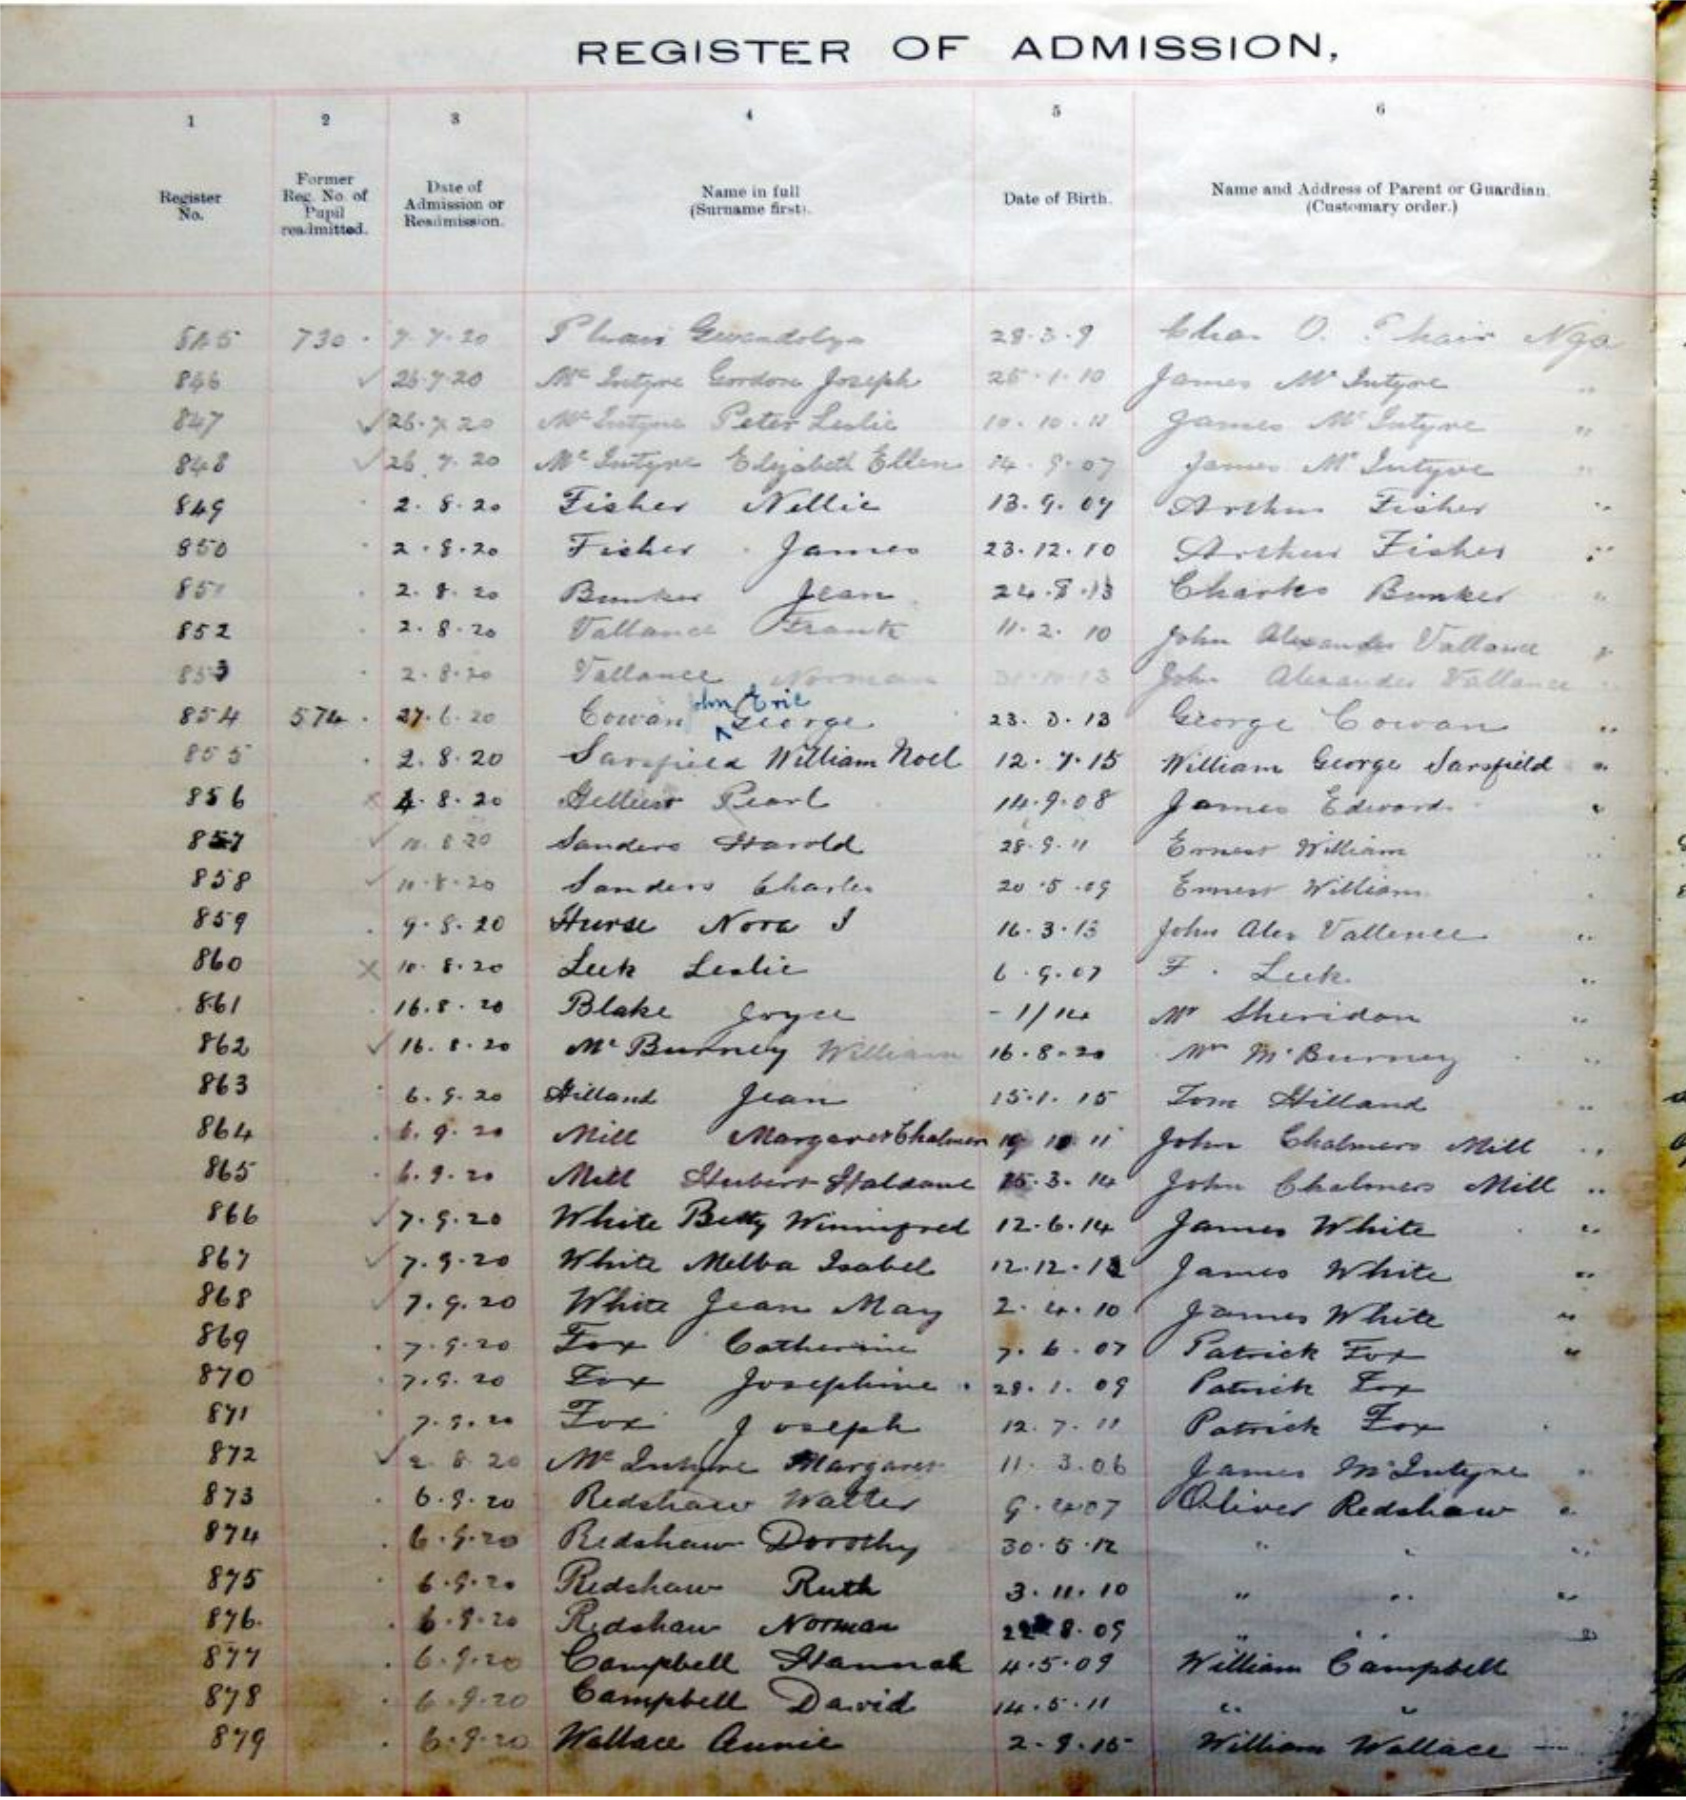 REGISTER OF ADMISSION,
1 2 3 4 5 6
Register No. Former Reg. No. of Pupil readmitted. Date of Admission or Readmission. Name in full (Surname first). Date of Birth. Name and Address of Parent or Guardian. (Customary order.)
845 730 . 7.7.20 Phair Gwendolyn 28.3.9 Chas O. Phair Nga
846 ✓ 26.7.20 Mc Intyre Gordon Joseph 25.1.10 James Mc Intyre "
847 ✓ 26.7.20 Mc Intyre Peter Leslie 10.10.11 James Mc Intyre "
848 ✓ 26.7.20 Mc Intyre Elizabeth Ellen 14.9.07 James Mc Intyre "
849 . 2.8.20 Fisher Nellie 13.9.07 Arthur Fisher "
850 . 2.8.20 Fisher James 23.12.10 Arthur Fisher "
851 . 2.8.20 Bunker Jean 24.8.13 Charles Bunker "
852 . 2.8.20 Vallance Frank 11.2.10 John Alexander Vallance "
853 . 2.8.20 Vallance Norman 31.10.13 John Alexander Vallance "
854 574 . 27.6.20 Cowan John Eric George 23.3.13 George Cowan "
855 . 2.8.20 Sarsfield William Noel 12.7.15 William George Sarsfield "
856 x 4.8.20 Pearl 14.9.08 James Edward "
857 ✓ 10.8.20 Sanders Harold 28.9.11 Ernest William "
858 ✓ 10.8.20 Sanders Charles 20.5.09 Ernest William
859 . 9.8.20 Hurse Nora I 16.3.13 John Alex Vallence "
860 x 10.8.20 Leek Leslie 6.9.07 F. Leek "
861 . 16.8.20 Blake Joyce - 1/14 Mr Sheridan "
862 ✓ 16.8.20 Mc Burney William 16.8.20 Wm McBurney "
863 . 6.9.20 Hilland Jean 15.1.15 Tom Hilland "
864 . 6.9.20 Mill Margaret Chalmers 19 10 11 John Chalmers Mill "
865 . 6.9.20 Mill Hubert Haldane 15.3.14 John Chalmers Mill "
866 ✓ 7.9.20 White Betty Winnifred 12.6.14 James White "
867 ✓ 7.9.20 White Melba Isabel 12.12.12 James White "
868 ✓ 7.9.20 White Jean May 2.4.10 James White "
869 . 7.9.20 Fox Catherine 7.6.07 Patrick Fox "
870 . 7.9.20 Fox Josephine . 28.1.09 Patrick Fox
871 . 7.9.20 Fox Joseph 12.7.11 Patrick Fox
872 ✓ 2.8.20 Mc Intyre Margaret 11.3.06 James McIntyre "
873 . 6.9.20 Redshaw Walter 9.4.07 Oliver Redshaw "
874 . 6.9.20 Redshaw Dorothy 30.5.12 " " "
875 . 6.9.20 Redshaw Ruth 3.11.10 " " "
876 . 6.9.20 Redshaw Norman 22.8.09 " " "
877 . 6.9.20 Campbell Hannah 4.5.09 William Campbell
878 . 6.9.20 Campbell David 14.5.11 " "
879 . 6.9.20 Wallace Annie 2.9.15 William Wallace